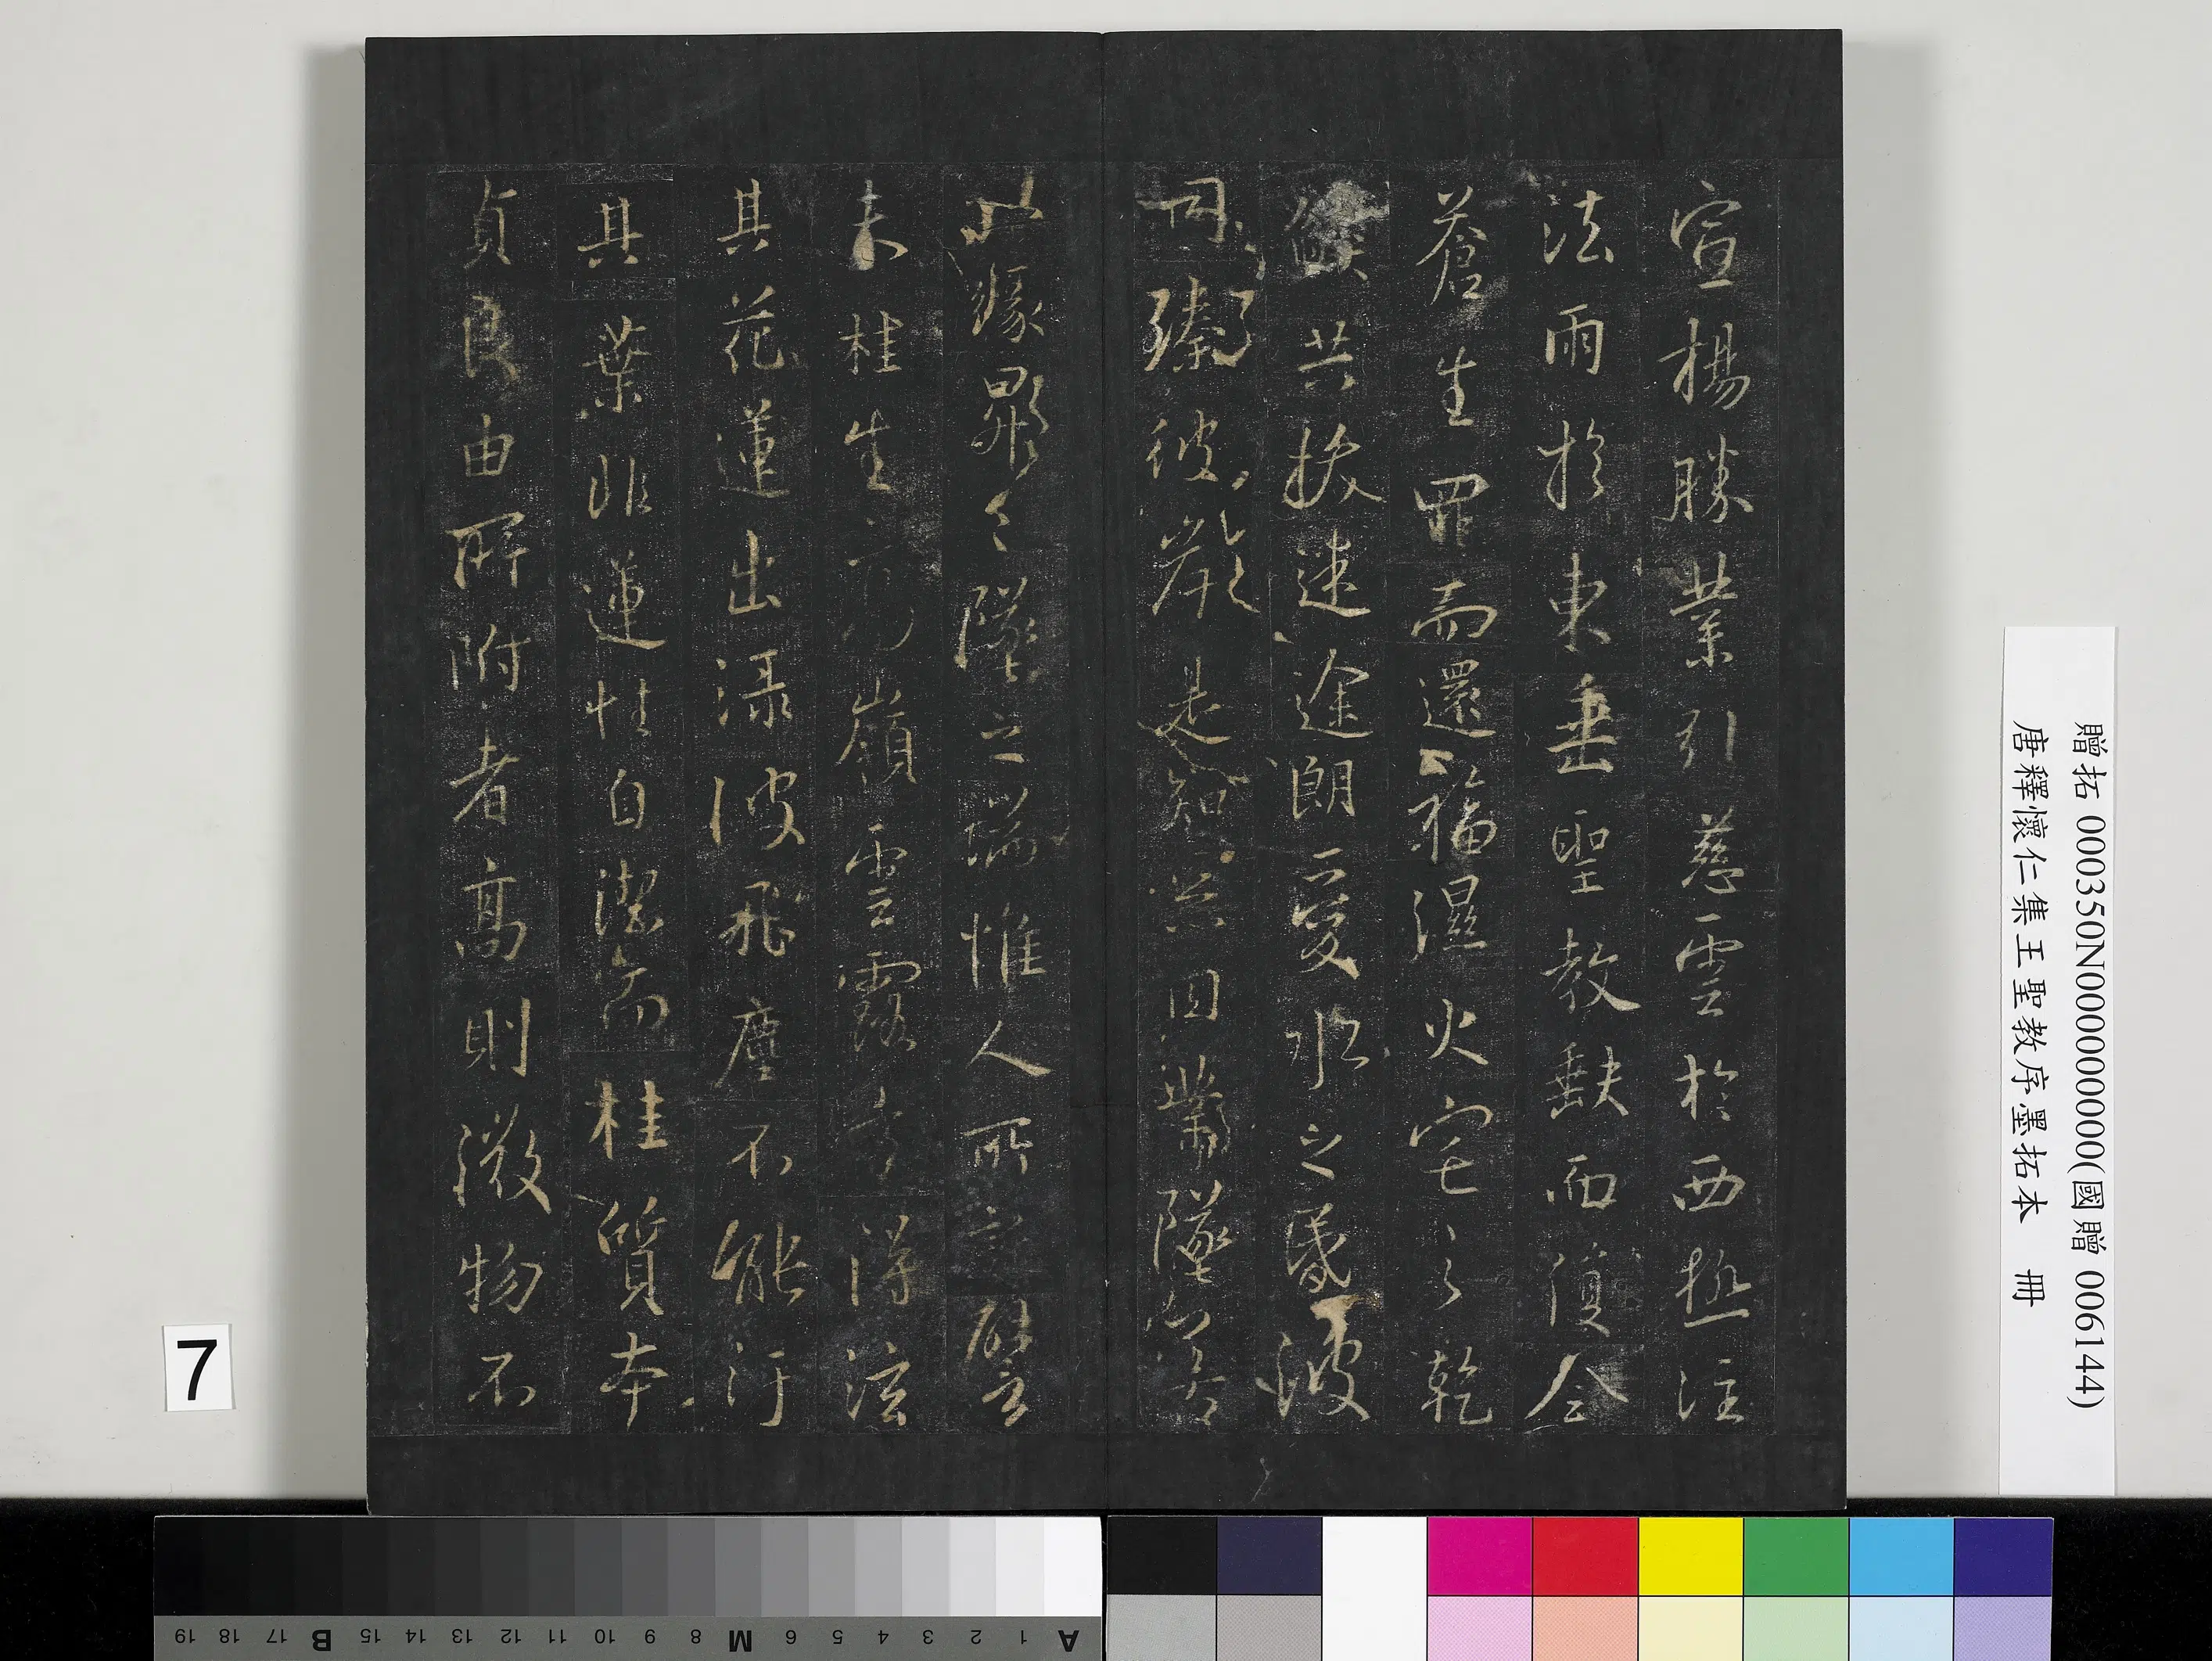 宣揚勝業引慈雲於西極注
法雨於東垂聖教缺而復全
蒼生罪而還福濕火宅之乾
焰共拔迷途朗愛水之昏波
同臻彼岸是知惡因業墜善
以緣昇昇墜之端惟人所託譬
夫桂生高嶺雲露方得泫
其花蓮出淥波飛塵不能汙
其葉非蓮性自潔而桂質本
貞良由所附者高則微物不
贈拓 000350N000000000(國贈 006144)
唐釋懷仁集王聖教序墨拓本 冊
7
A 1 2 3 4 5 6 M 8 9 10 11 12 13 14 15 B 17 18 19